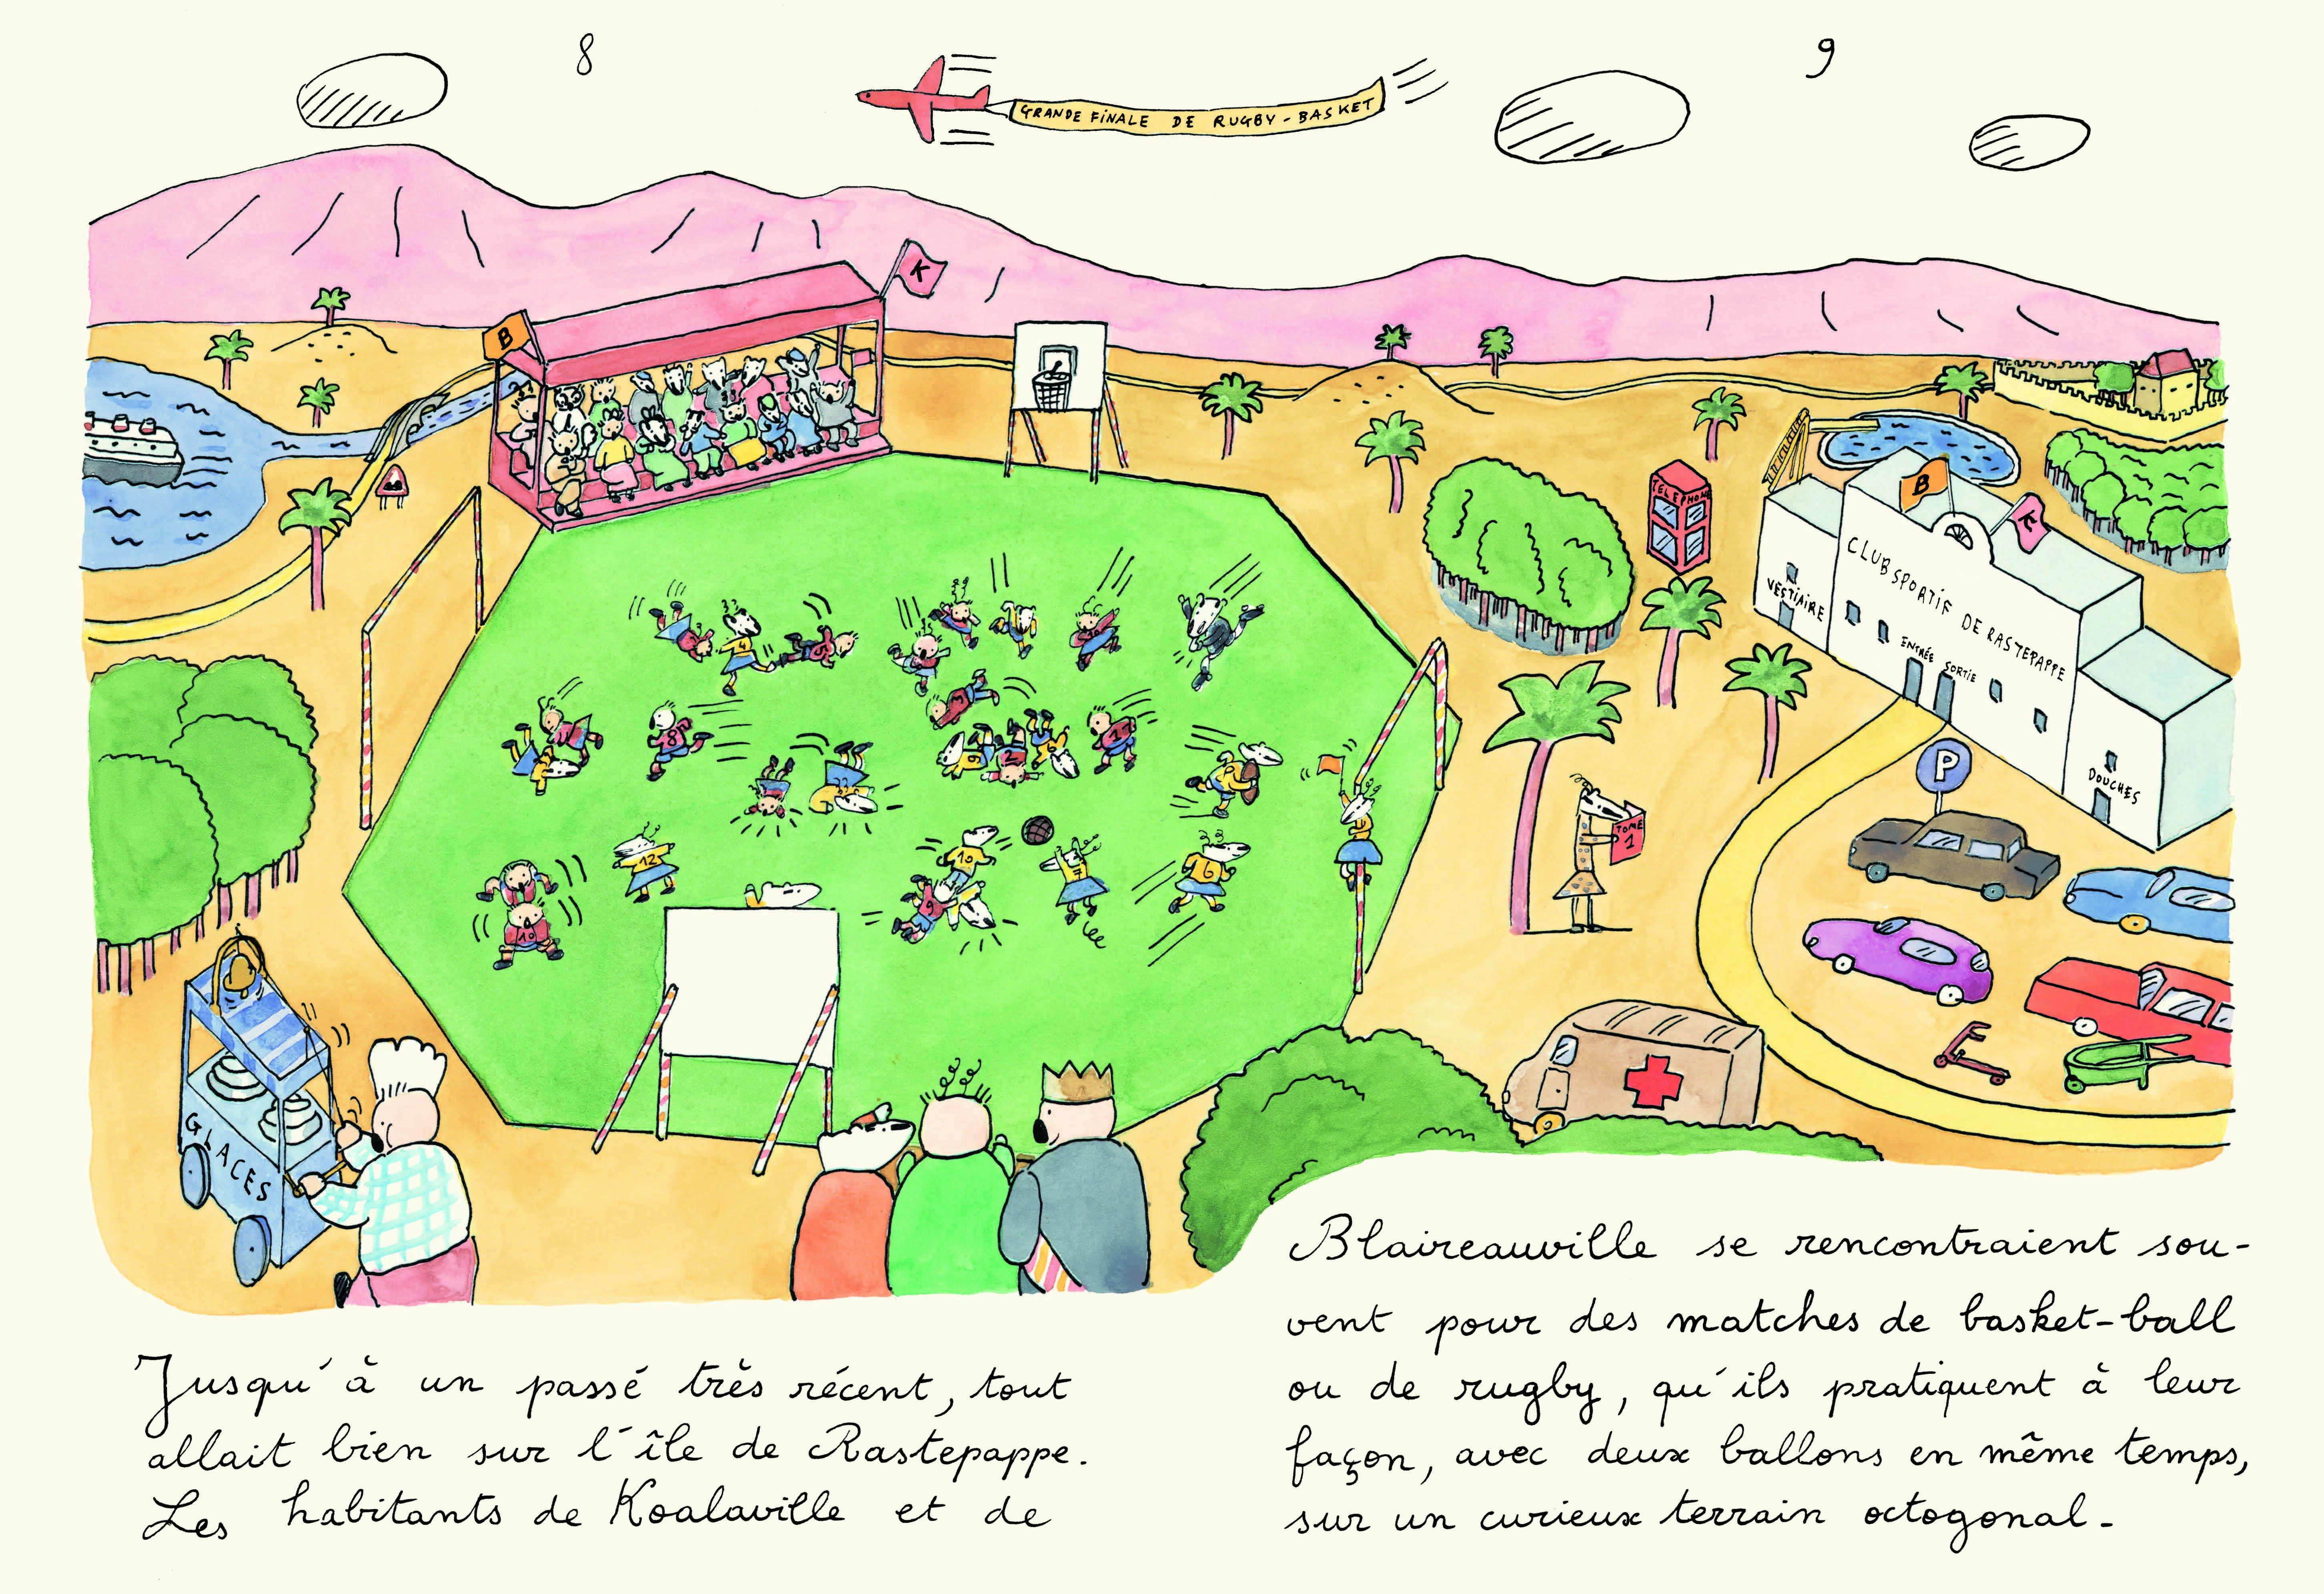 8
9
GRANDE FINALE DE RUGBY-BASKET
K
B
TELEPHONE
B
K
CLUB SPORTIF DE RASTEPAPPE
VESTIAIRE
ENTRÉE
SORTIE
DOUCHES
P
TOME
1
4
5
8
11
2
9
12
10
7
6
9
10
GLACES
Jusqu'à un passé très récent, tout
allait bien sur l'île de Rastepappe.
Les habitants de Koalaville et de
Blaireauville se rencontraient sou-
vent pour des matches de basket-ball
ou de rugby, qu'ils pratiquent à leur
façon, avec deux ballons en même temps,
sur un curieux terrain octogonal.